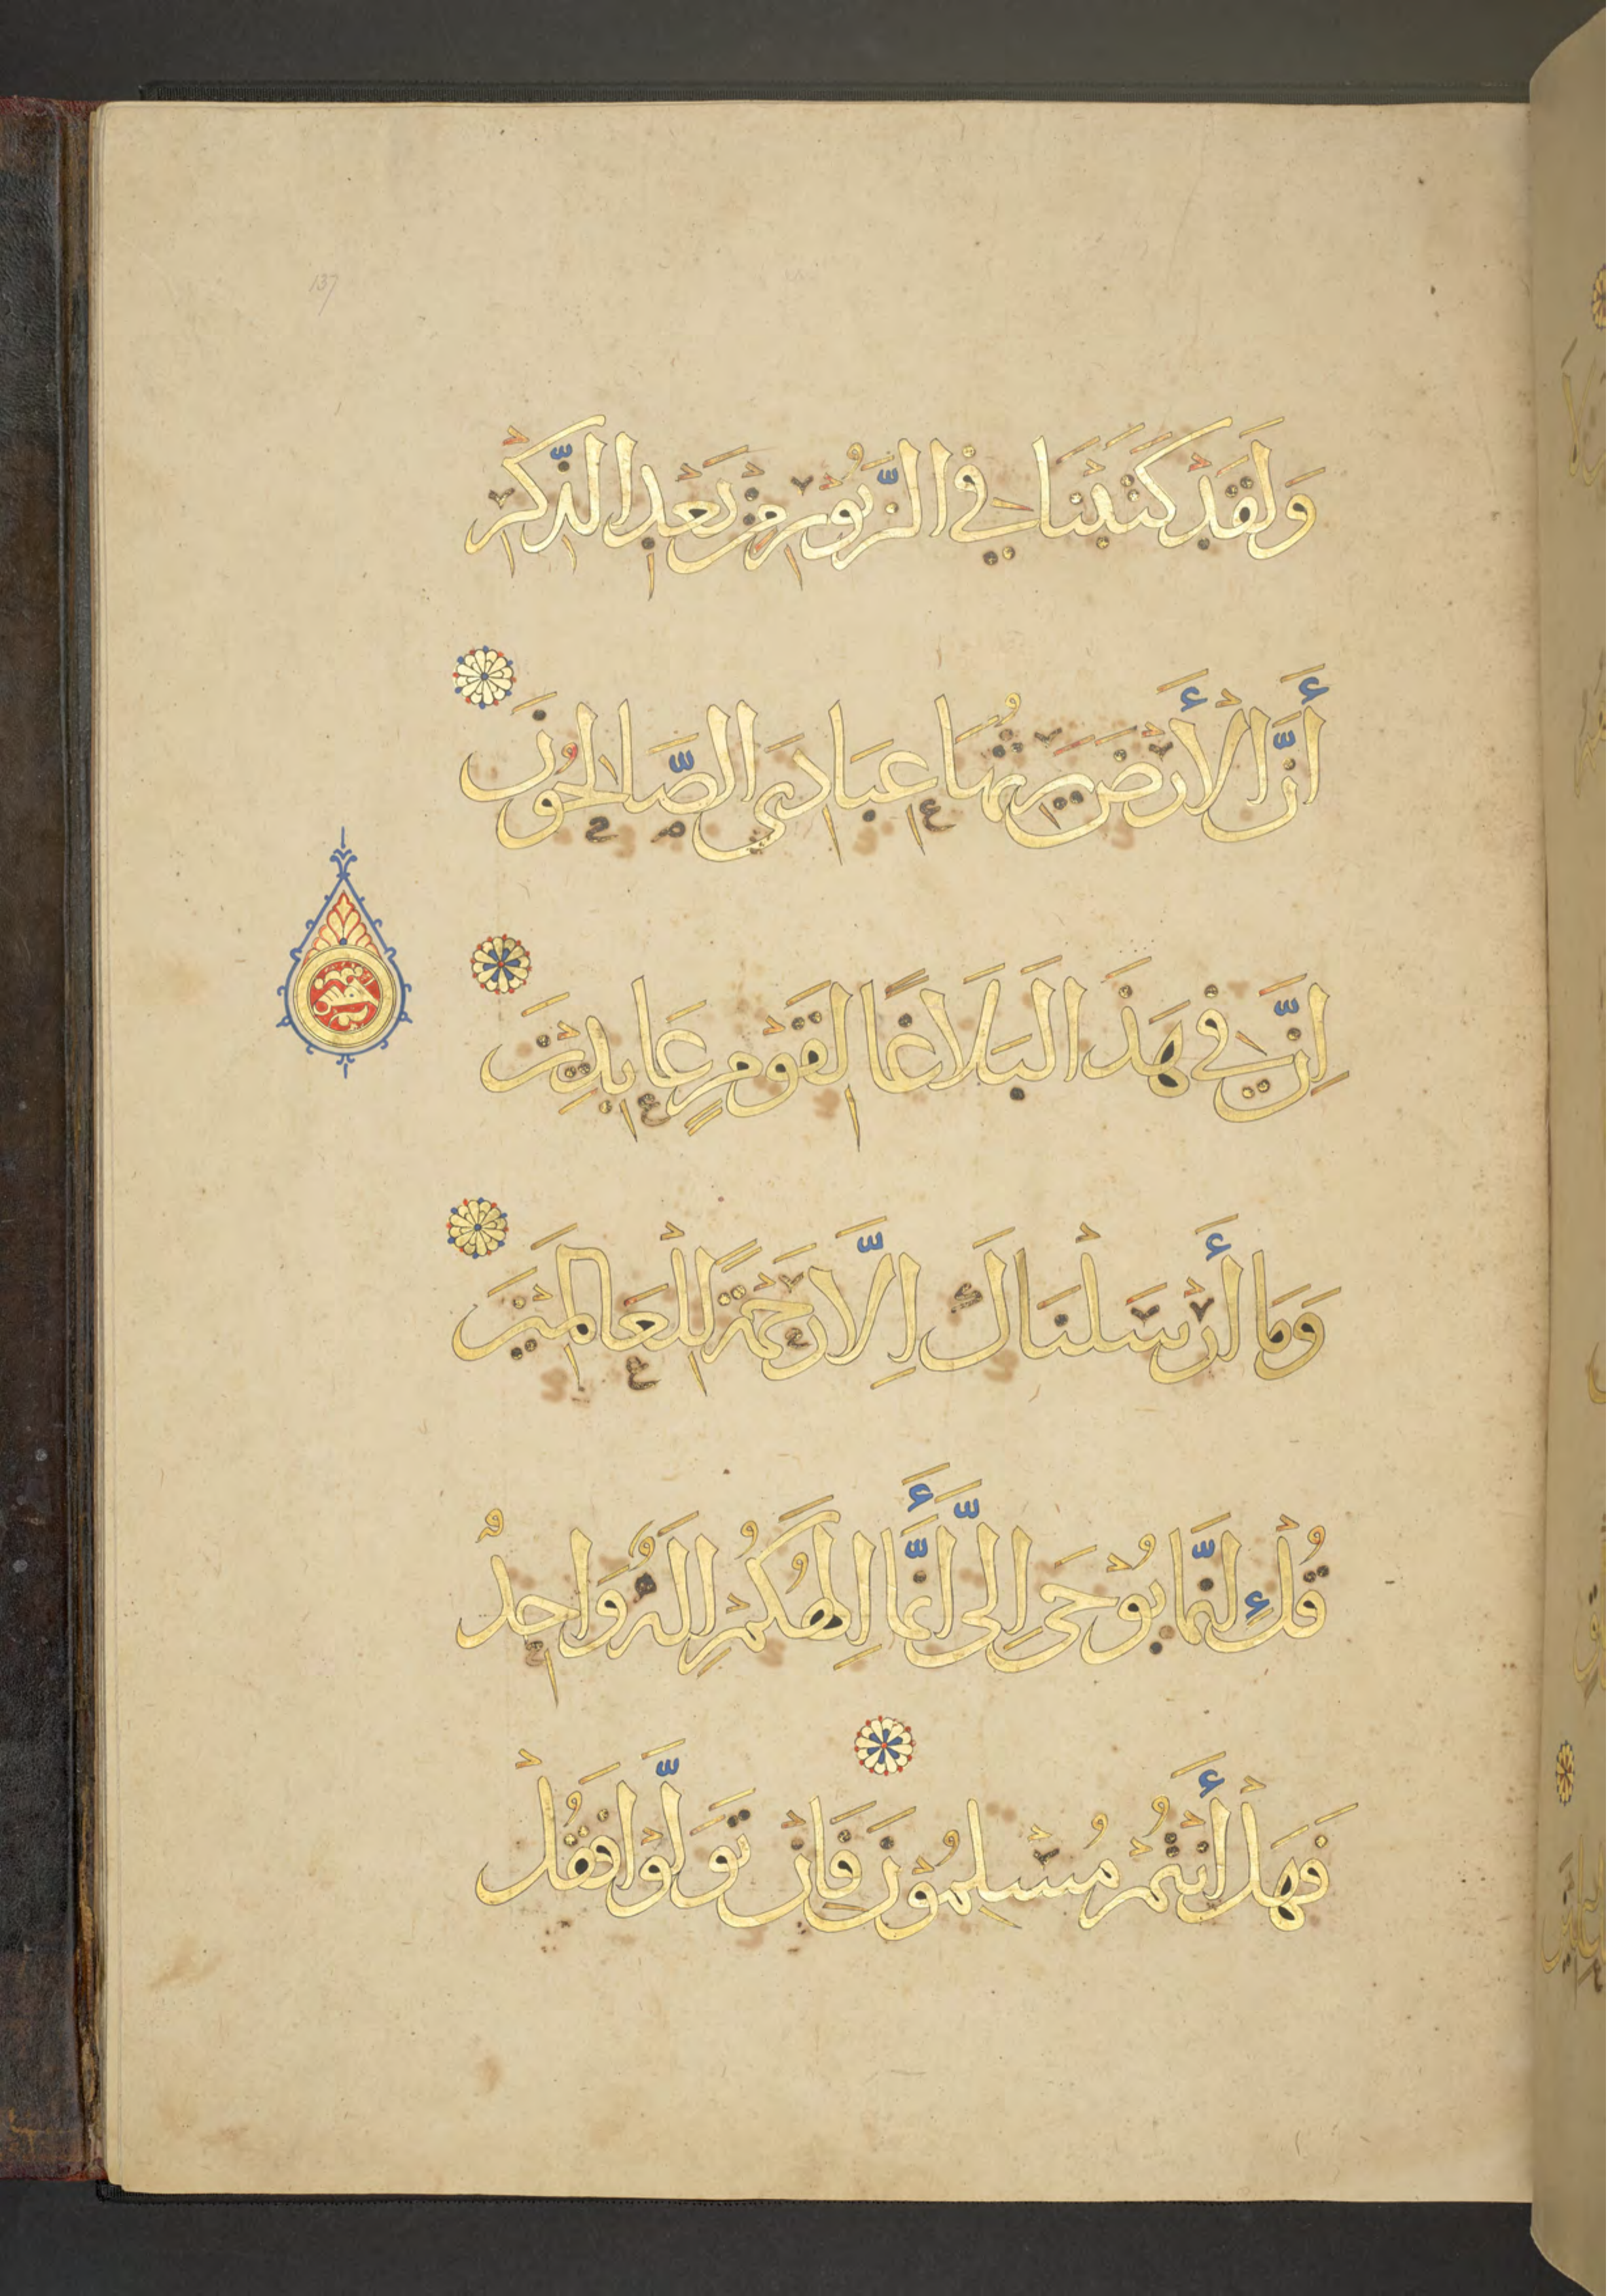 137
وَلَقَدْ كَتَبْنَا فِي الزَّبُوْرِ مِنْ بَعْدِ الذِّكْرِ
أَنَّ الْأَرْضَ يَرِثُهَا عِبَادِيَ الصَّالِحُوْنَ
اِنَّ فِي هَذَا لَبَلَاغًا لِقَوْمٍ عَابِدِيْنَ
وَمَا أَرْسَلْنَاكَ اِلَّا رَحْمَةً لِلْعَالَمِيْنَ
قُلْ اِنَّمَا يُوْحَى اِلَيَّ أَنَّمَا اِلَهُكُمْ اِلَهٌ وَاحِدٌ
فَهَلْ أَنْتُمْ مُسْلِمُوْنَ فَاِنْ تَوَلَّوْا فَقُلْ